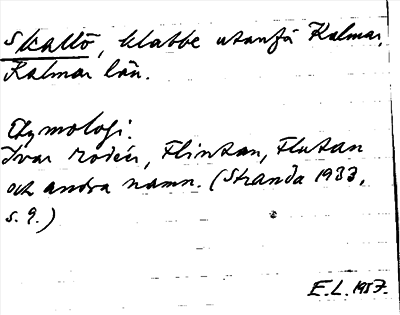 Skallö, klabbe utanför Kalmar,
Kalmar län.
Etymologi.
Ivar Modéer, Flintan, Flutan
och andra namn. (Stranda 1933,
s. 9.)
E.L. 1957.